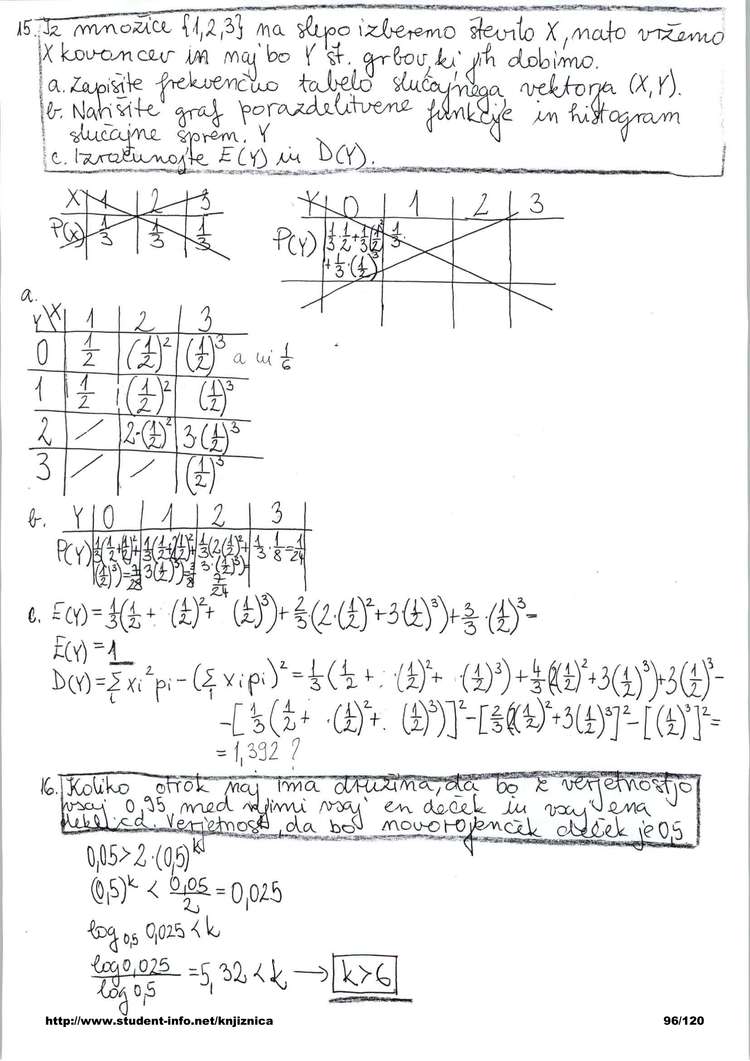 15. Iz množice {1,2,3} na slepo izberemo število X, nato vržemo
X kovancev in naj bo Y št. grbov, ki jih dobimo.
a. Zapišite frekvenčno tabelo slučajnega vektorja (X,Y).
b. Narišite graf porazdelitvene funkcije in histogram
slučajne sprem. Y
c. Izračunajte E(Y) in D(Y).
X | 1 | 2 | 3
P(X) | 1/3 | 1/3 | 1/3
Y | 0 | 1 | 2 | 3
P(Y) | 1/3·1/2+1/3(1/2)² | 1/3·
+1/3·(1/2)³
a.
Y\X | 1 | 2 | 3
0 | 1/2 | (1/2)² | (1/2)³ a ni 1/6
1 | 1/2 | (1/2)² | (1/2)³
2 | / | 2·(1/2)² | 3·(1/2)³
3 | / | / | (1/2)³
b. Y | 0 | 1 | 2 | 3
P(Y) 1/3 · 1/8 = 1/24
7/24
c. E(Y) = 1/3(1/2 + (1/2)² + (1/2)³) + 2/3(2·(1/2)² + 3(1/2)³) + 3/3·(1/2)³ =
E(Y) = 1
D(Y) = Σ xi² pi − (Σ xi pi)² = 1/3(1/2 + ·(1/2)² + ·(1/2)³) + 4/3(2(1/2)² + 3(1/2)³) + 3(1/2)³ −
− [1/3(1/2 + ·(1/2)² + · (1/2)³)]² − [2/3(2(1/2)² + 3(1/2)³]² − [(1/2)³]² =
= 1,392 ?
16. Koliko otrok naj ima družina, da bo z verjetnostjo
vsaj 0,95 med njimi vsaj en deček in vsaj ena
deklica. Verjetnost, da bo novorojenček deček je 0,5
0,05 > 2·(0,5)^k
(0,5)^k < 0,05/2 = 0,025
log 0,5 0,025 < k
log 0,025 / log 0,5 = 5,32 < k → k > 6
http://www.student-info.net/knjiznica
96/120